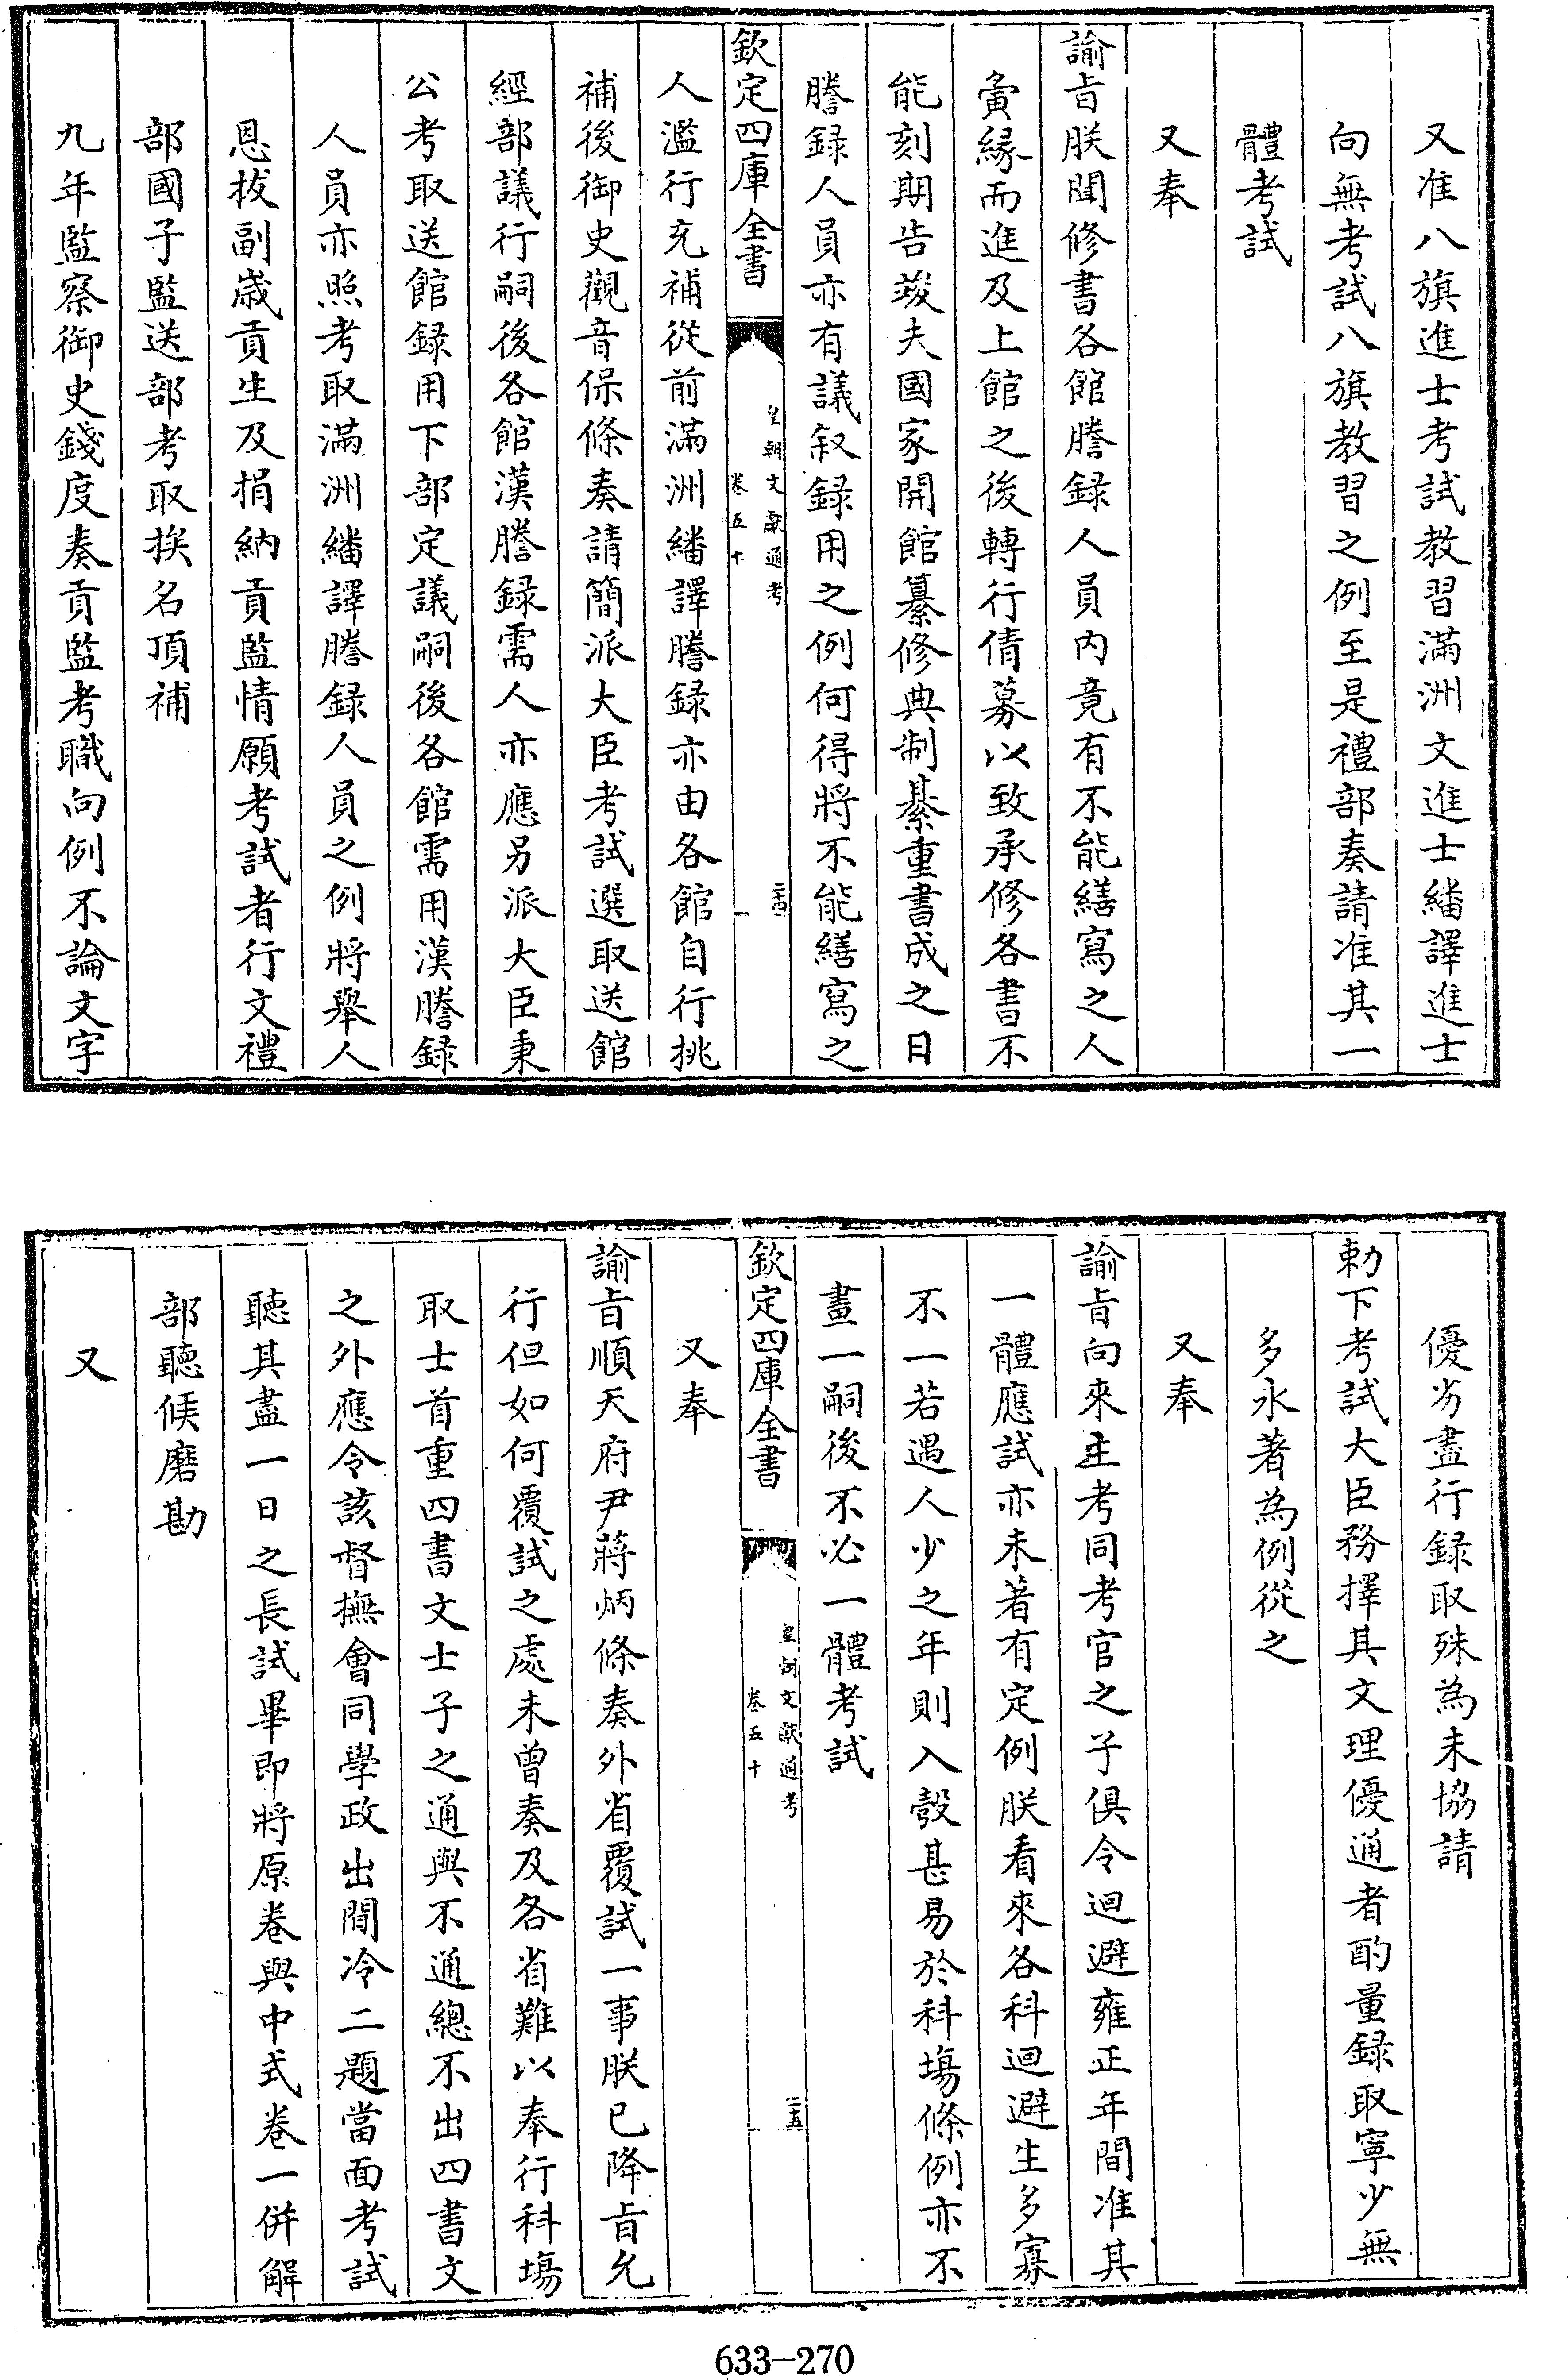 又准八旗進士考試教習滿洲文進士繙譯進士
向無考試八旗教習之例至是禮部奏請准其一
體考試
又奉
諭旨朕聞修書各館謄録人員内竟有不能繕寫之人
夤緣而進及上館之後轉行倩募以致承修各書不
能刻期告竣夫國家開館纂修典制綦重書成之日
謄録人員亦有議叙録用之例何得將不能繕寫之
欽定四庫全書
皇朝文獻通考
卷五十
二十四
人濫行充補從前滿洲繙譯謄録亦由各館自行挑
補後御史觀音保條奏請簡派大臣考試選取送館
經部議行嗣後各館漢謄録需人亦應另派大臣秉
公考取送館録用下部定議嗣後各館需用漢謄録
人員亦照考取滿洲繙譯謄録人員之例將舉人
恩拔副歲貢生及捐納貢監情願考試者行文禮
部國子監送部考取挨名頂補
九年監察御史錢度奏貢監考職向例不論文字
優劣盡行録取殊為未協請
勅下考試大臣務擇其文理優通者酌量録取寧少無
多永著為例從之
又奉
諭旨向來主考同考官之子俱令迴避雍正年間准其
一體應試亦未著有定例朕看來各科迴避生多寡
不一若遇人少之年則入彀甚易於科場條例亦不
畫一嗣後不必一體考試
欽定四庫全書
皇朝文獻通考
卷五十
二十五
又奉
諭旨順天府尹蔣炳條奏外省覆試一事朕已降旨允
行但如何覆試之處未曾奏及各省難以奉行科場
取士首重四書文士子之通與不通總不出四書文
之外應令該督撫會同學政出閒冷二題當面考試
聽其盡一日之長試畢即將原卷與中式卷一併解
部聽候磨勘
又
633-270